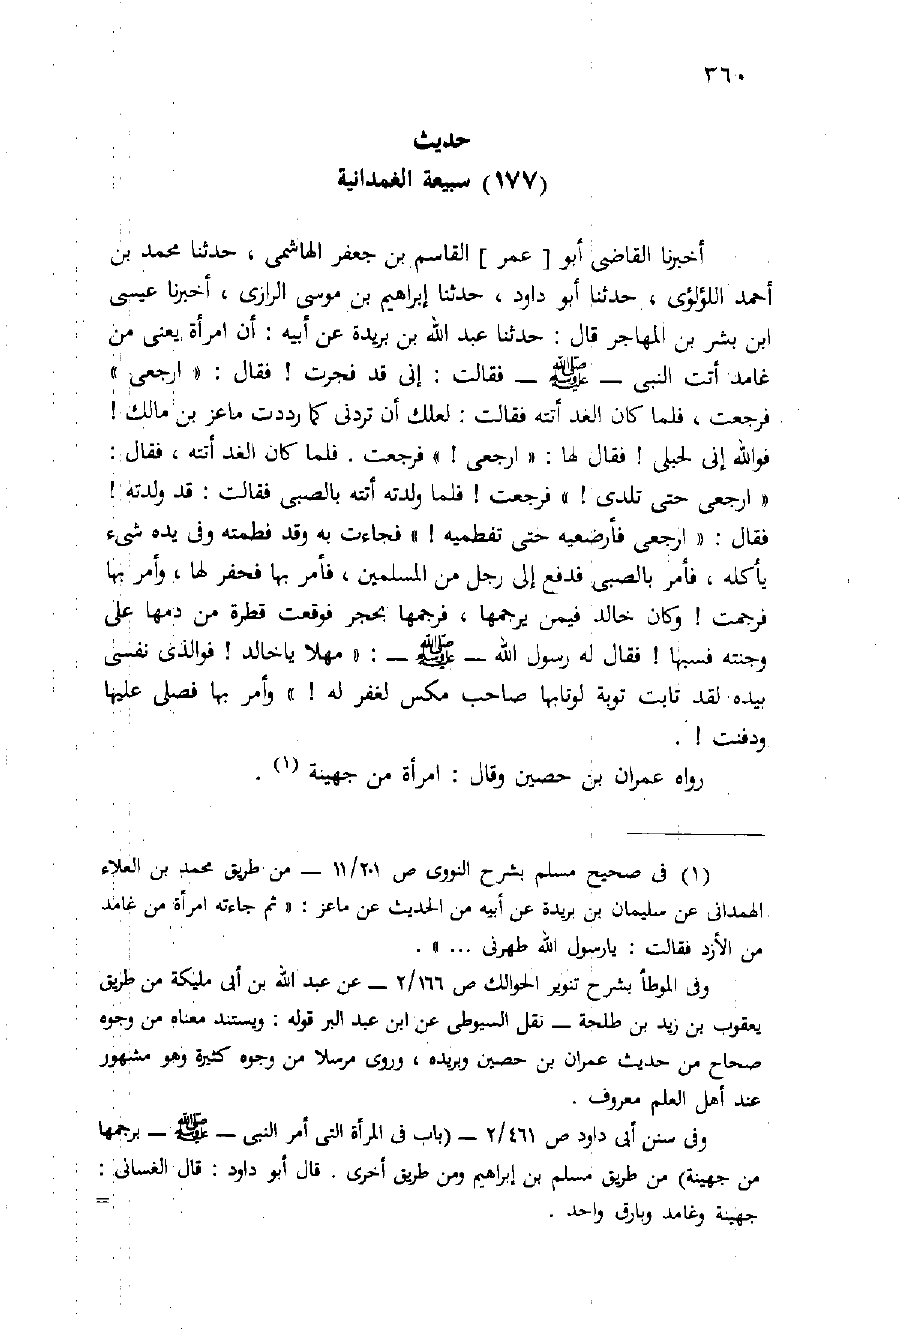 ٣٦٠
حديث
(١٧٧) سبيعة الغمدانية
أخبرنا القاضى أبو [ عمر ] القاسم بن جعفر الهاشمى ، حدثنا محمد بن
أحمد اللؤلؤى ، حدثنا أبو داود ، حدثنا إبراهيم بن موسى الرازى ، أخبرنا عيسى
ابن بشر بن المهاجر قال : حدثنا عبد الله بن بريدة عن أبيه : أن امرأة يعنى من
غامد أتت النبى – ﷺ – فقالت : إنى قد فجرت ! فقال : « ارجعى »
فرجعت ، فلما كان الغد أتته فقالت : لعلك أن تردنى كما رددت ماعز بن مالك !
فوالله إنى لحبلى ! فقال لها : « ارجعى ! » فرجعت . فلما كان الغد أتته ، فقال :
« ارجعى حتى تلدى ! » فرجعت ! فلما ولدته أتته بالصبى فقالت : قد ولدته !
فقال : « ارجعى فأرضعيه حتى تفطميه ! » فجاءت به وقد فطمته وفى يده شىء
يأكله ، فأمر بالصبى فدفع إلى رجل من المسلمين ، فأمر بها فحفر لها ، وأمر بها
فرجمت ! وكان خالد فيمن يرجمها ، فرجمها بحجر فوقعت قطرة من دمها على
وجنته فسبها ! فقال له رسول الله – ﷺ – : « مهلا ياخالد ! فوالذى نفسى
بيده لقد تابت توبة لوتابها صاحب مكس لغفر له ! » وأمر بها فصلى عليها
ودفنت ! .
رواه عمران بن حصين وقال : امرأة من جهينة (١) .
(١) فى صحيح مسلم بشرح النووى ص ١١/٢٠١ – من طريق محمد بن العلاء
الهمدانى عن سليمان بن بريدة عن أبيه من الحديث عن ماعز : « ثم جاءته امرأة من غامد
من الأزد فقالت : يارسول الله طهرنى ... » .
وفى الموطأ بشرح تنوير الحوالك ص ٢/١٦٦ – عن عبد الله بن أبى مليكة من طريق
يعقوب بن زيد بن طلحة – نقل السيوطى عن ابن عبد البر قوله : ويستند معناه من وجوه
صحاح من حديث عمران بن حصين وبريده ، وروى مرسلا من وجوه كثيرة وهو مشهور
عند أهل العلم معروف .
وفى سنن أبى داود ص ٢/٤٦١ – (باب فى المرأة التى أمر النبى – ﷺ – برجمها
من جهينة) من طريق مسلم بن إبراهيم ومن طريق أخرى . قال أبو داود : قال الغسانى :
جهينة وغامد وبارق واحد .
=